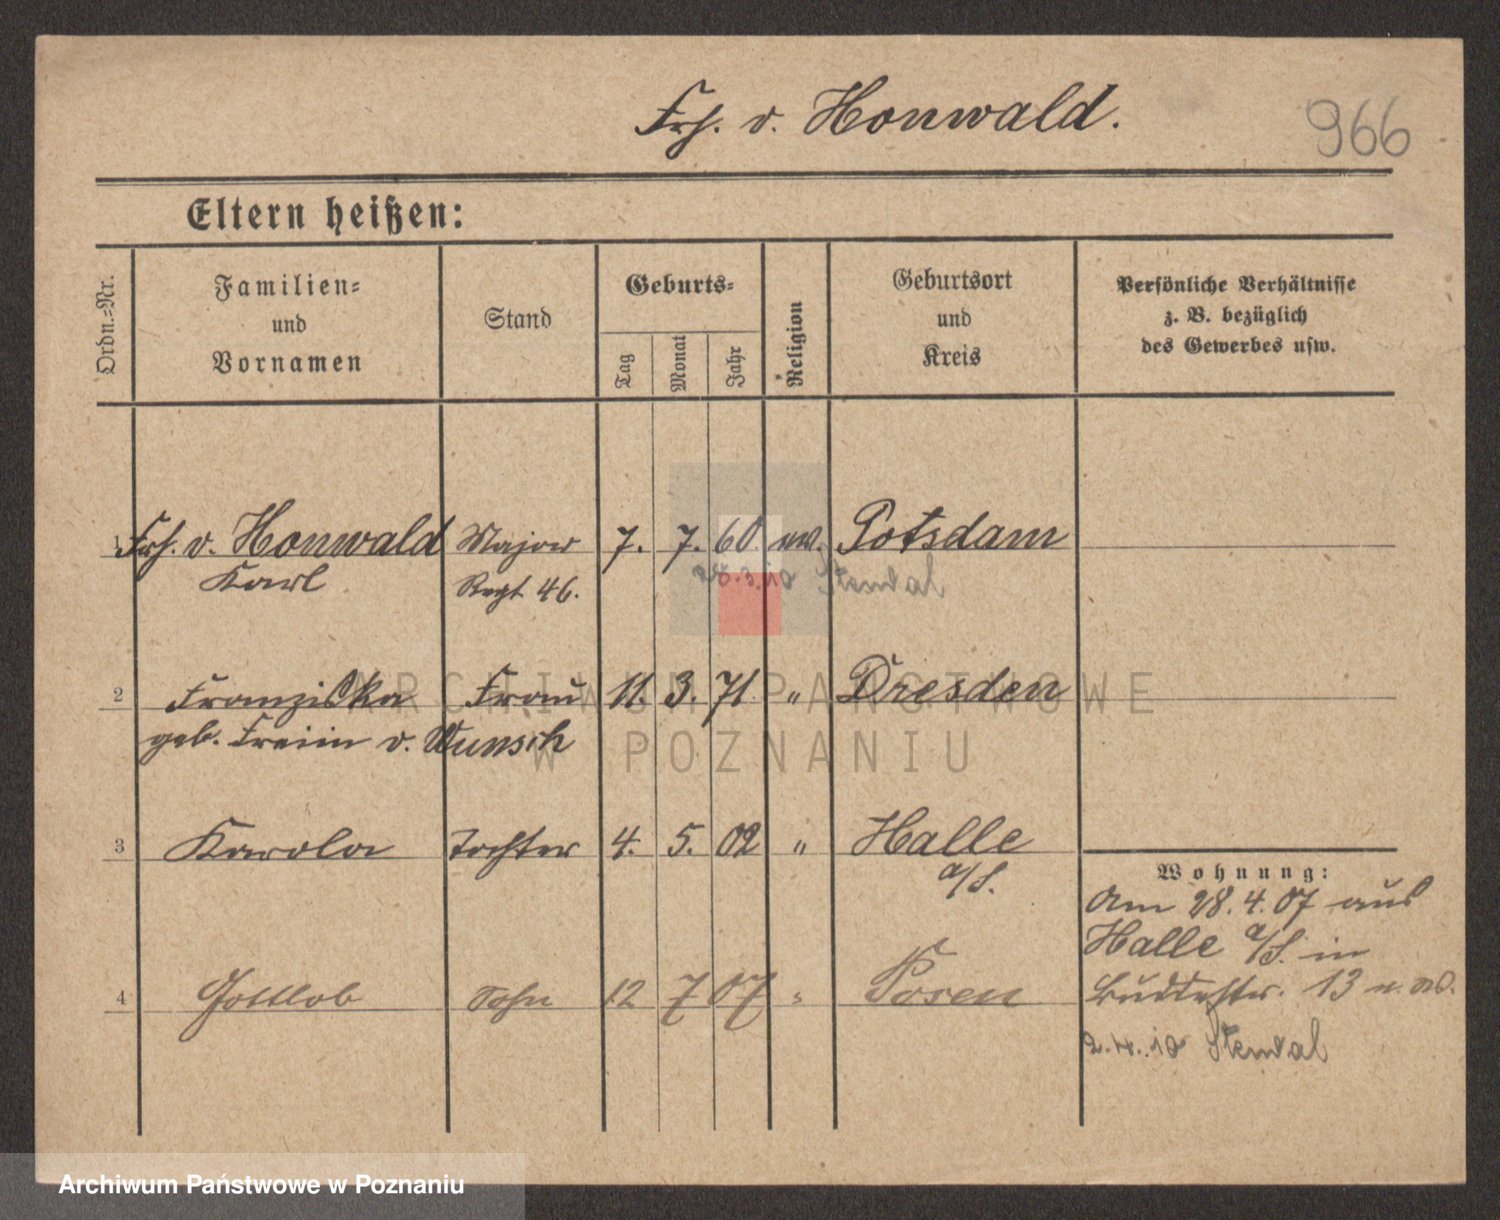 Frh. v. Honwald.
966
Eltern heißen:
Ordn.-Nr.
Familien-
und
Vornamen
Stand
Geburts-
Tag
Monat
Jahr
Religion
Geburtsort
und
Kreis
Persönliche Verhältnisse
z. B. bezüglich
des Gewerbes usw.
1 Frh. v. Honwald Major 7. 7. 60 ev. Potsdam
Karl Regt 46. Stendal
2 Franziska Frau 11. 3. 71 " Dresden
geb. Freiin v. Wunsch
3 Karola Tochter 4. 5. 02 " Halle
a/S.
Wohnung:
Am 28.4.07 aus
Halle a/S. in
13
4 Gottlob Sohn 12 7 07 " Posen
2.4.10 Stendal
ARCHIWUM PAŃSTWOWE
W POZNANIU
Archiwum Państwowe w Poznaniu